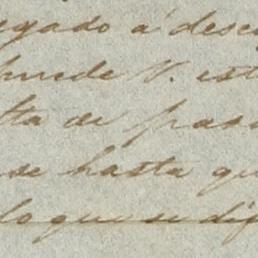 egado a desc
puede V. est
ta de pas
se hasta qu
lo que se dig